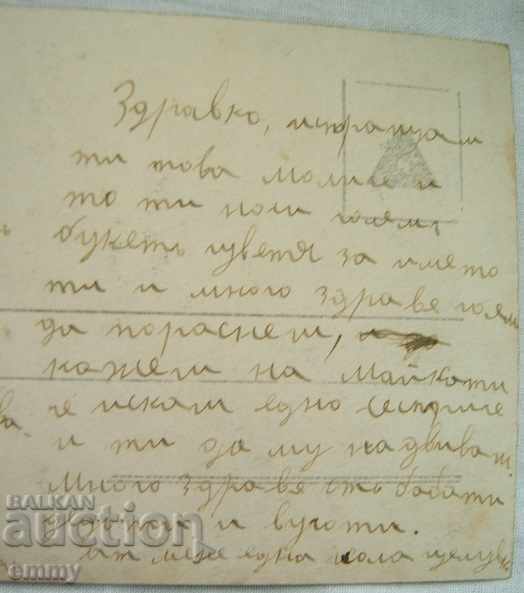 Здравко, испращам
ти това момиче и
то ти носи големъ
букетъ цветя за името
ти и много здраве голям
да пораснеш,
кажеш на майкати
че искам едно сестриче
и ти да му надвиваш.
Много здраве отъ бабати
дядоти и вуготи.
от мене една кола целувк
ва.
BALKAN
auction
emmy